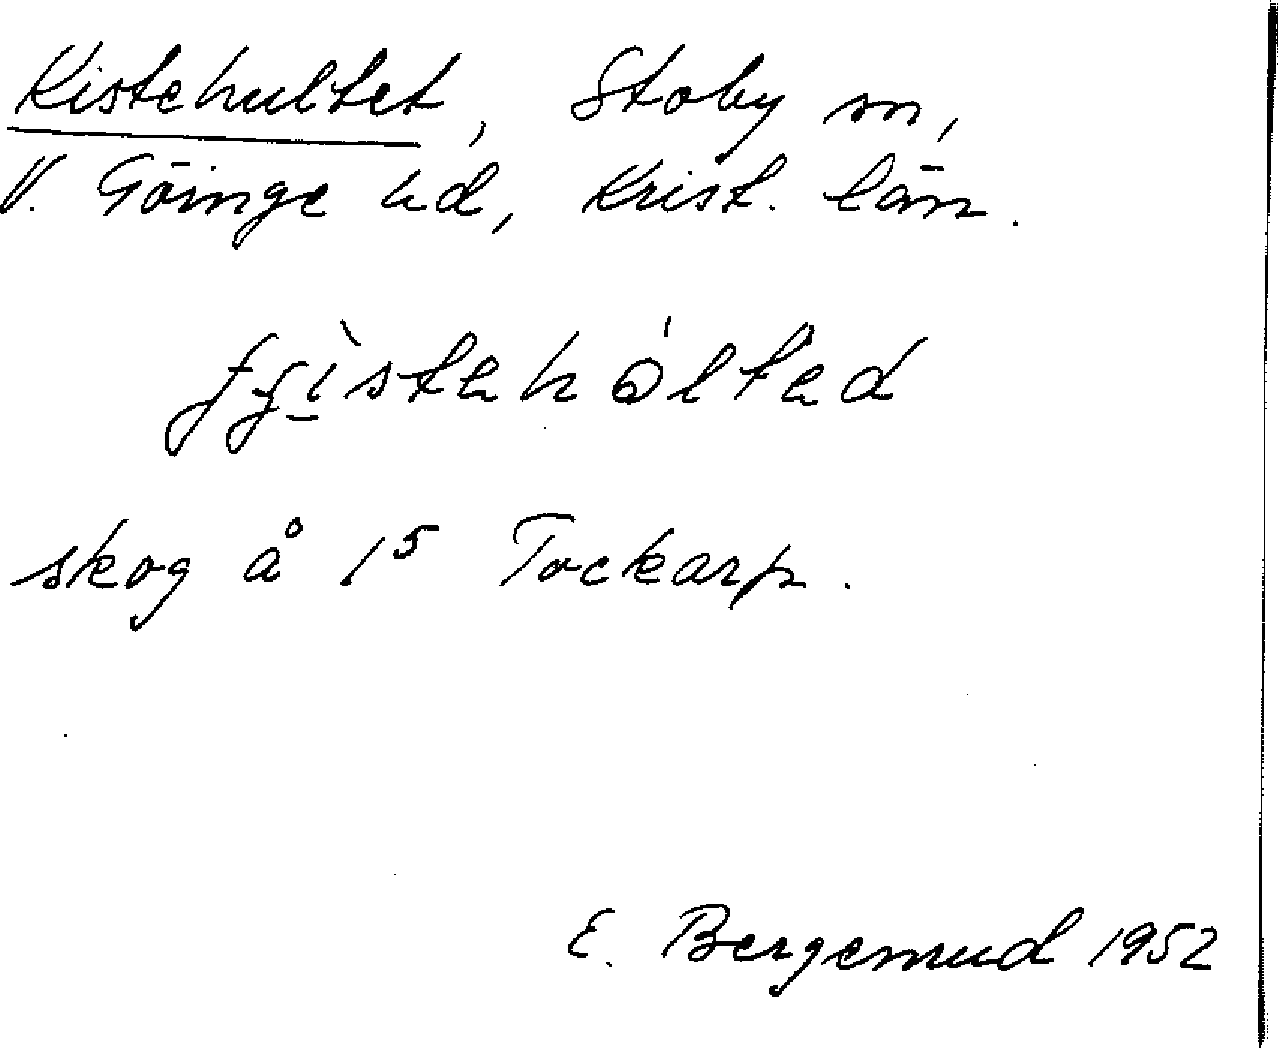 Kistehultet, Stoby sn,
V. Göinge hd, Krist. län.
skog å 1⁵ Tockarp.
E. Bergemrud 1952